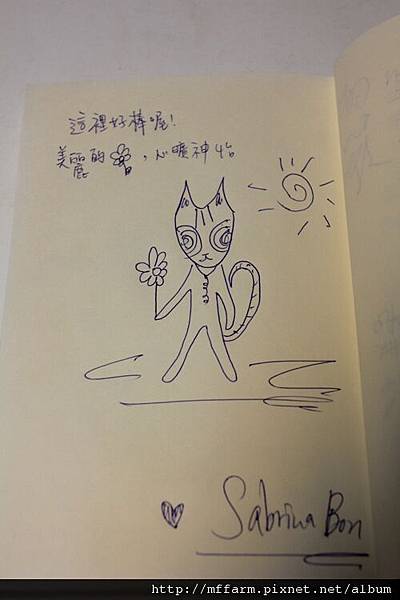 這裡好棒喔!
美麗的,心曠神怡
Sabrina Bon
http://mffarm.pixnet.net/album